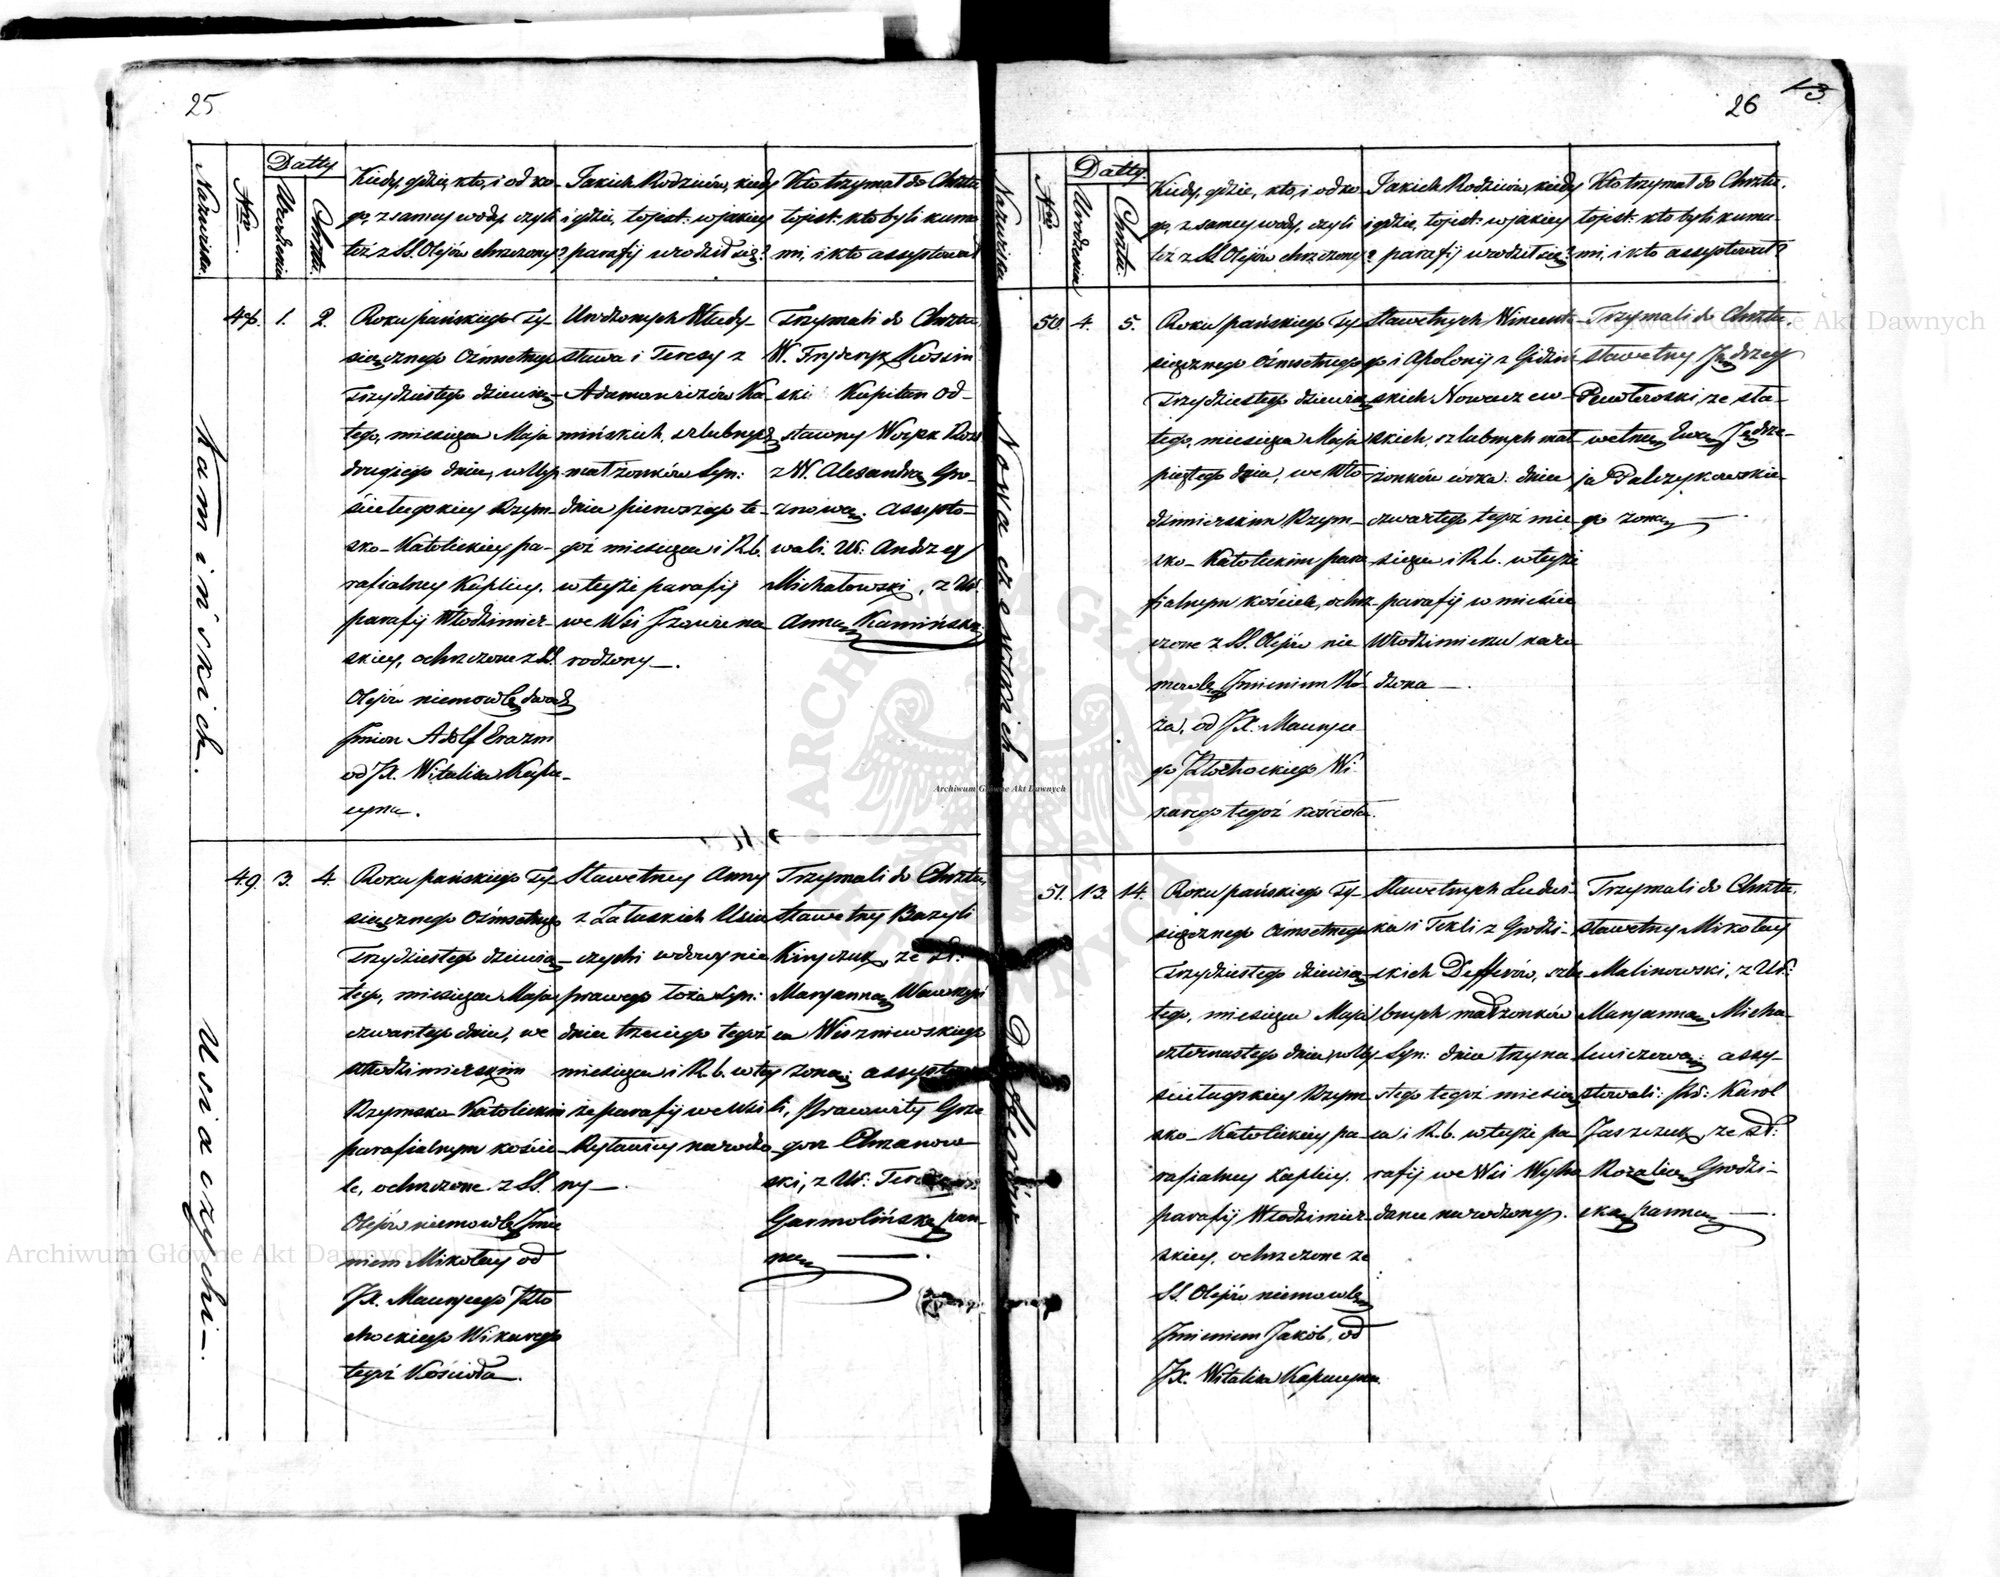 25
Datty
Nazwiska
Nro
Urodzenia
Chrztu
Kiedy, gdzie, kto, i od ko-
go, z samey wody, czyli
też z SS. Olejów chrzczony?
Jakich Rodziców, kiedy
i gdzie, tojest: w jakiey
parafij urodził się?
Kto trzymał do Chrztu
tojest: kto byli kuma-
mi, i kto assystował
Kamińskich.
48. 1. 2.
Roku pańskiego Ty-
siącznego Ośmsetnego
Trzydziestego dziewią-
tego, miesiąca Maja
drugiego dnia, w Uly-
sko-Katolickiey pa-
rafialney Kaplicy.
parafij Włodzimier-
skiey, ochrzczone z SS.
Olejów niemowlę dwoch
Jmion Adolf Erazm
od JX. Witalisa Kapu-
cyna.
Urodzonych Włady-
sława i Teresy z
Adamowiczów Ka-
mińskich, szlubnych
małżonków Syn:
dnia pierwszego te-
goż miesiąca i R. b.
w teyże parafij
we Wsi na
rodzony.
Trzymali do Chrztu,
W. Fryderyk
ski Kapitan od-
stawny Woysk
z W. Alexandrą Gro-
znową: assysto-
wali Ur. Andrzey
Michałowski, z Ur.
Anną Kamińską.
Usiaczychi.
49. 3. 4.
Roku pańskiego Ty-
siącznego Ośmsetnego
Trzydziestego dziewią-
tego, miesiąca Maja
czwartego dnia, we
Włodzimierskim
Rzymsko Katolickim
parafialnym koście-
le, ochrzczone z SS.
Olejów niemowlę Jmie-
niem Mikołay od
JX. Maurycego Kło-
chockiego Wikarego
tegoż Kościoła.
Sławetney Anny
z Załuskich Usia-
czychi wdowy nie
prawego łoża Syn:
dnia trzeciego tegoż
miesiąca i R. b. w tey-
że parafij we Wsi
narodzo-
ny.
Trzymali do Chrztu,
Sławetny Bazyli
ze Sł:
Maryanną
Wiszniewskiego
żoną: assysto-
li, Pracowity Grze-
gorz Chrzanow-
ski, z Ur:
Garmolińską pan-
ną.
26
13
Datty.
Nazwiska
Nro
Urodzenia
Chrztu
Kiedy, gdzie, kto, i od ko-
go, z samey wody, czyli
też z SS. Olejów chrzczony?
Jakich Rodziców, kiedy
i gdzie, tojest: w jakiey
parafij urodził się?
Kto trzymał do Chrztu.
tojest: kto byli kuma-
mi, i kto assystował?
Nowaczewskich
50. 4. 5.
Roku pańskiego Ty-
siącznego Ośmsetnego
Trzydziestego dziewią-
tego, miesiąca Maja
piątego dnia, we Wło-
dzimierskim Rzym-
sko-Katolickim para-
fialnym kościele, ochrz-
czone z SS. Olejów nie
mowlę Jmieniem Ró-
ża, od JX. Mauryce-
go Kłochockiego Wi-
karego tegoż kościoła.
Sławetnych Wincente-
go i Apolonij z
skich Nowaczew-
skich, szlubnych mał-
żonków córka: dnia
czwartego tegoż mie-
siąca i R. b. w teyże
parafij w mieście
Włodzimierzu naro
dzona.
Trzymali do Chrztu,
sławetny Jędrzey
ze sła-
wetną Ewą Jędrze-
ja
go żoną
Defferów
51. 13. 14.
Roku pańskiego Ty-
siącznego Ośmsetnego
Trzydziestego dziewią-
tego, miesiąca Maja
czternastego dnia, w Uly-
sko-Katolickiey pa-
rafialney kaplicy.
parafij Włodzimier-
skiey, ochrzczone ze
SS. Olejów niemowlę
Jmieniem Jakób, od
JX. Witalisa Kapucyna.
Sławetnych Ludwi-
ka i Tekli z Grodzi-
skich Defferów, szlu-
bnych małżonków
Syn: dnia trzyna-
stego tegoż miesią-
ca i R. b. w teyże pa-
rafij we Wsi
narodzony.
Trzymali do Chrztu.
sławetny Mikołay
Malinowski, z Ur:
Maryanną Micha-
lewiczową: assy-
stowali: Karol
Jaszczuk, ze Sł:
Rozalią Grodzi-
ską panną.
Archiwum Główne Akt Dawnych
Archiwum Główne Akt Dawnych
Archiwum Główne Akt Dawnych